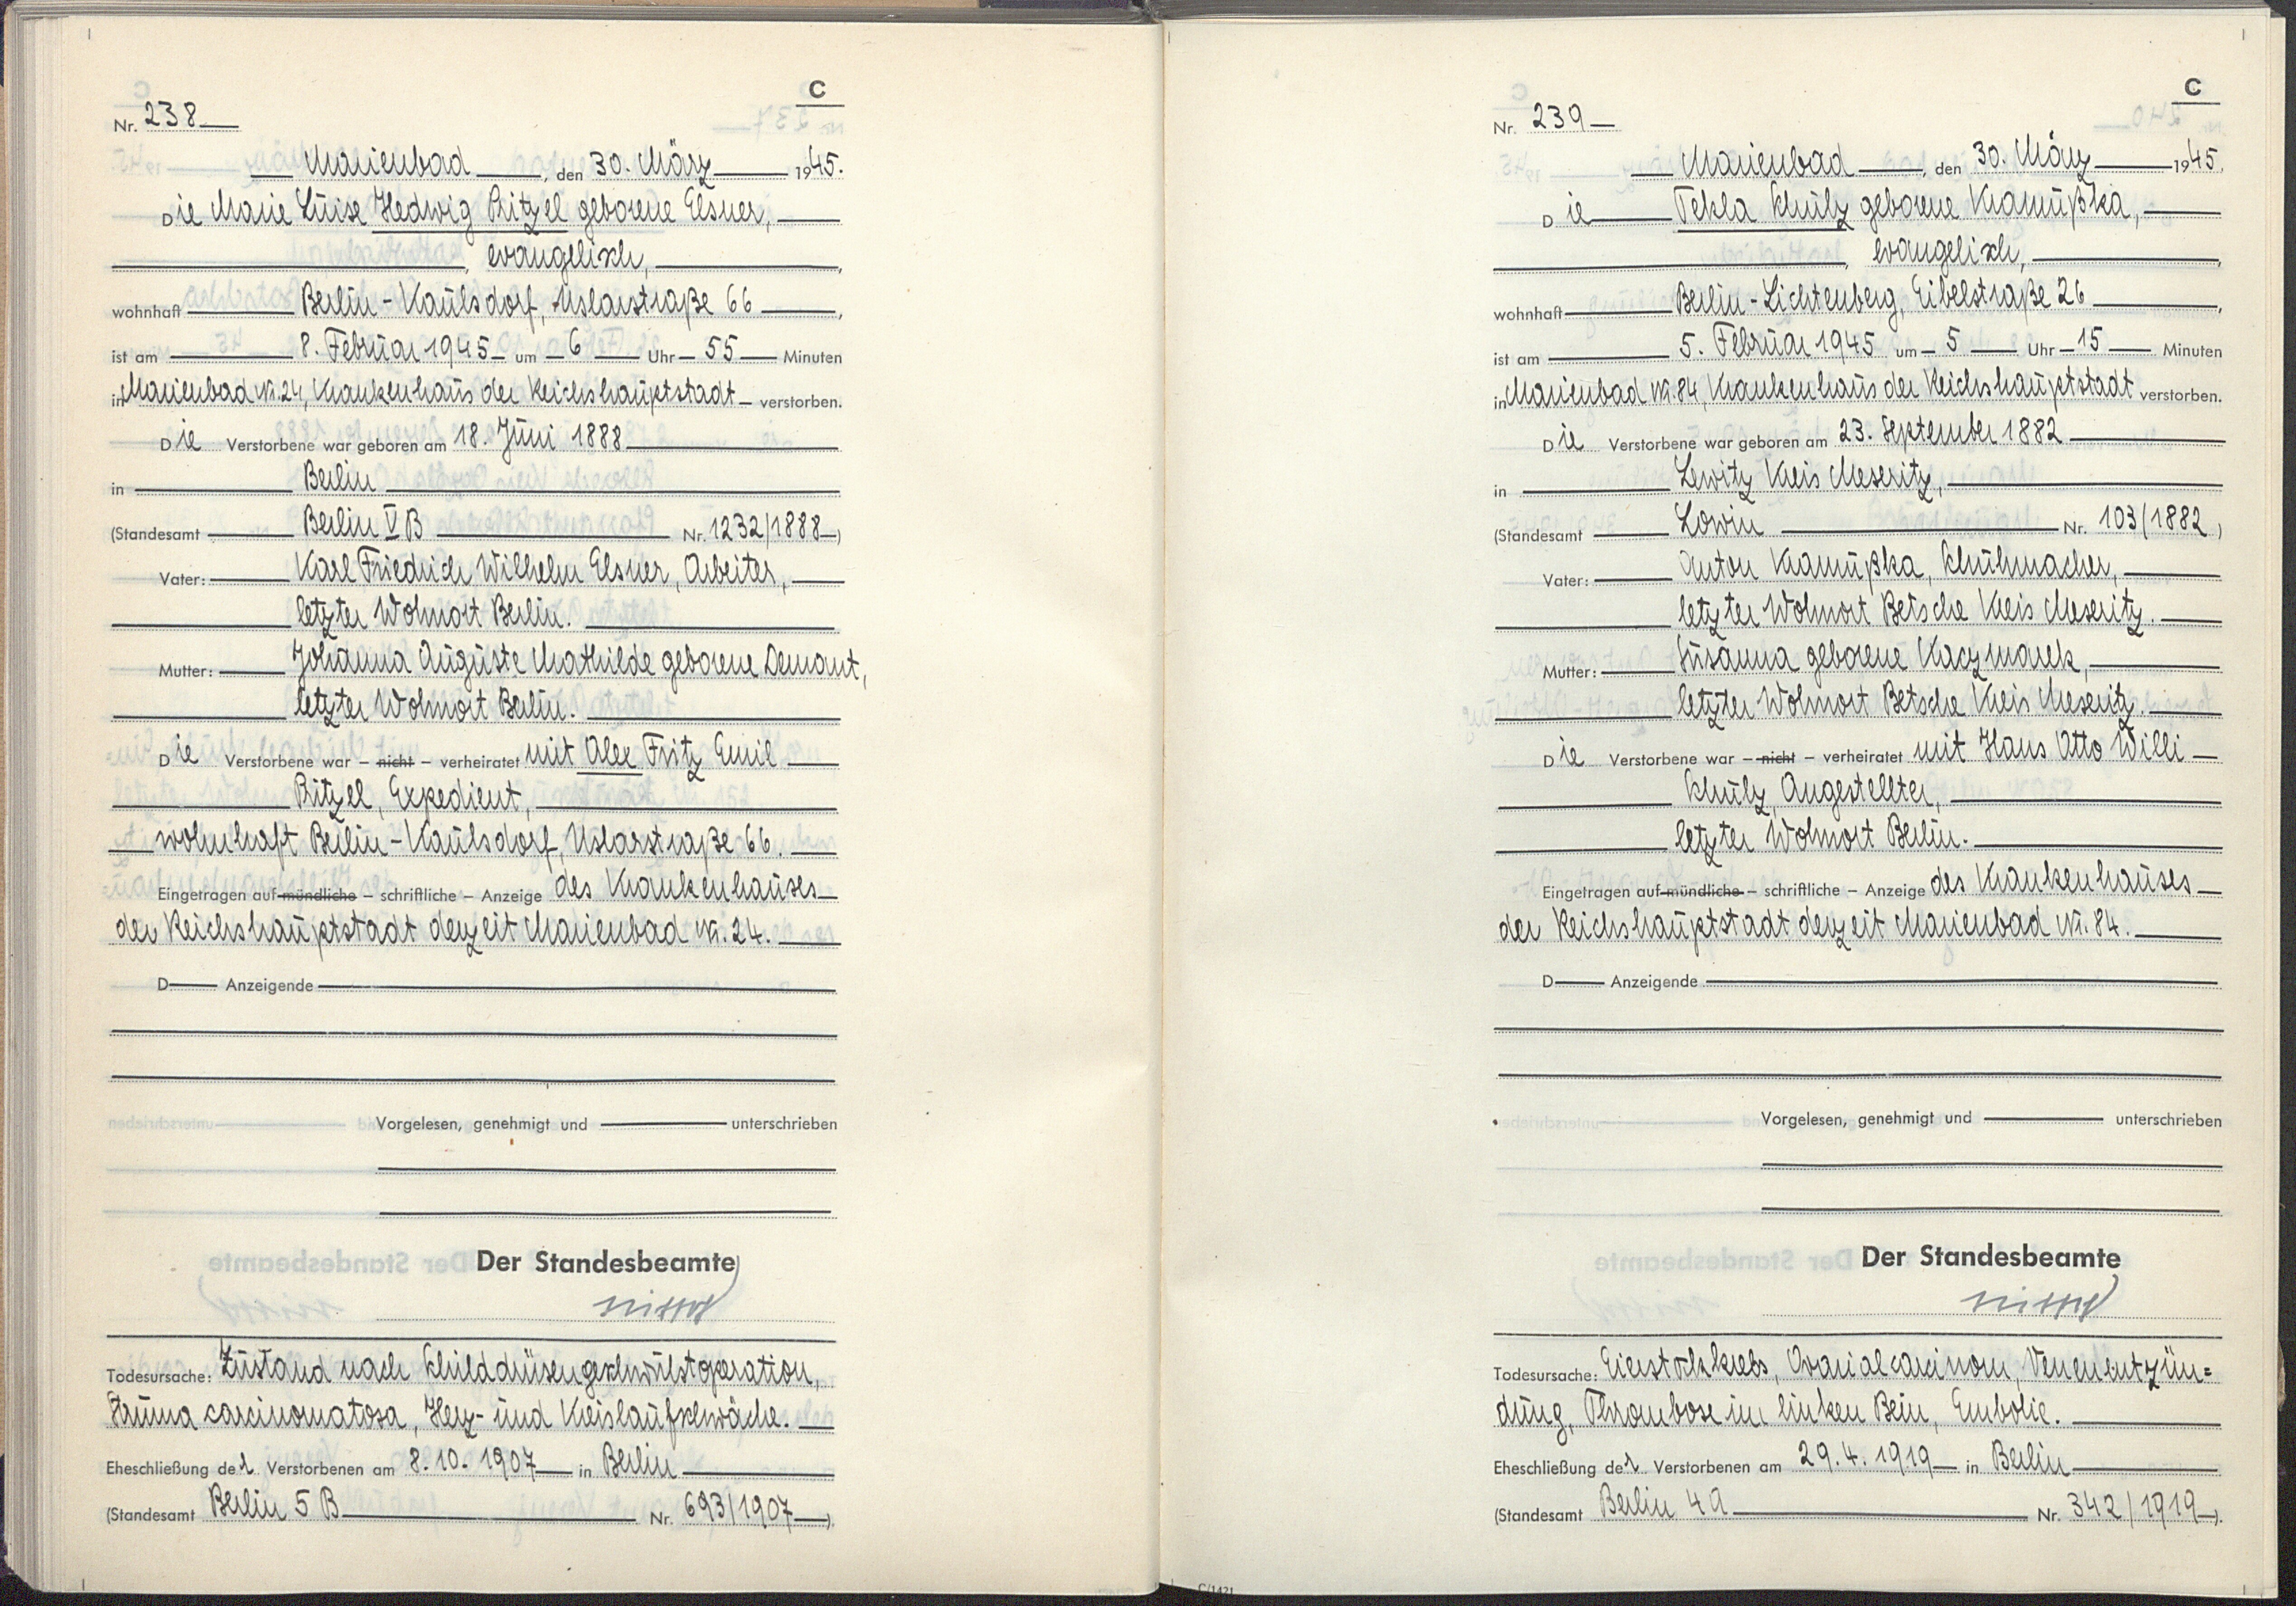 C
Nr. 238
Marienbad, den 30. März 1945.
Die Marie Luise Hedwig Pritzel geborene Elsner,
, evangelisch,
wohnhaft Berlin-Kaulsdorf, Uslarstraße 66,
ist am 8. Februar 1945 um 6 Uhr 55 Minuten
in Marienbad Nr. 24, Krankenhaus der Reichshauptstadt verstorben.
Die Verstorbene war geboren am 18. Juni 1888
in Berlin
(Standesamt Berlin V B Nr. 1232/1888)
Vater: Karl Friedrich Wilhelm Elsner, Arbeiter,
letzter Wohnort Berlin.
Mutter: Johanna Auguste Mathilde geborene Demant,
letzter Wohnort Berlin.
Die Verstorbene war – nicht – verheiratet mit Alex Fritz Emil
Pritzel, Expedient,
wohnhaft Berlin-Kaulsdorf, Uslarstraße 66.
Eingetragen auf mündliche – schriftliche – Anzeige des Krankenhauses
der Reichshauptstadt derzeit Marienbad Nr. 24.
D Anzeigende
Vorgelesen, genehmigt und unterschrieben
Der Standesbeamte
Todesursache: Zustand nach Schilddrüsengeschwulstoperation,
Struma carcinomatosa, Herz- und Kreislaufschwäche.
Eheschließung der Verstorbenen am 8.10.1907 in Berlin
(Standesamt Berlin 5 B Nr. 693/1907).
C
Nr. 239
Marienbad, den 30. März 1945.
Die Tekla Schulz geborene Kramußka,
, evangelisch,
wohnhaft Berlin-Lichtenberg, Eibelstraße 26,
ist am 5. Februar 1945 um 5 Uhr 15 Minuten
in Marienbad Nr. 84, Krankenhaus der Reichshauptstadt verstorben.
Die Verstorbene war geboren am 23. September 1882
in Lewitz Kreis Meseritz,
(Standesamt Lowin Nr. 103/1882)
Vater: Anton Kramußka, Schuhmacher,
letzter Wohnort Betsche Kreis Meseritz.
Mutter: Susanna geborene Kaczmarek,
letzter Wohnort Betsche Kreis Meseritz.
Die Verstorbene war – nicht – verheiratet mit Hans Otto Willi
Schulz, Angestellter,
letzter Wohnort Berlin.
Eingetragen auf mündliche – schriftliche – Anzeige des Krankenhauses
der Reichshauptstadt derzeit Marienbad Nr. 84.
D Anzeigende
Vorgelesen, genehmigt und unterschrieben
Der Standesbeamte
Todesursache: Eierstockkrebs, Ovarialcarcinom, Venenentzün=
dung, Thrombose im linken Bein, Embolie.
Eheschließung der Verstorbenen am 29.4.1919 in Berlin
(Standesamt Berlin 4a Nr. 342/1919).